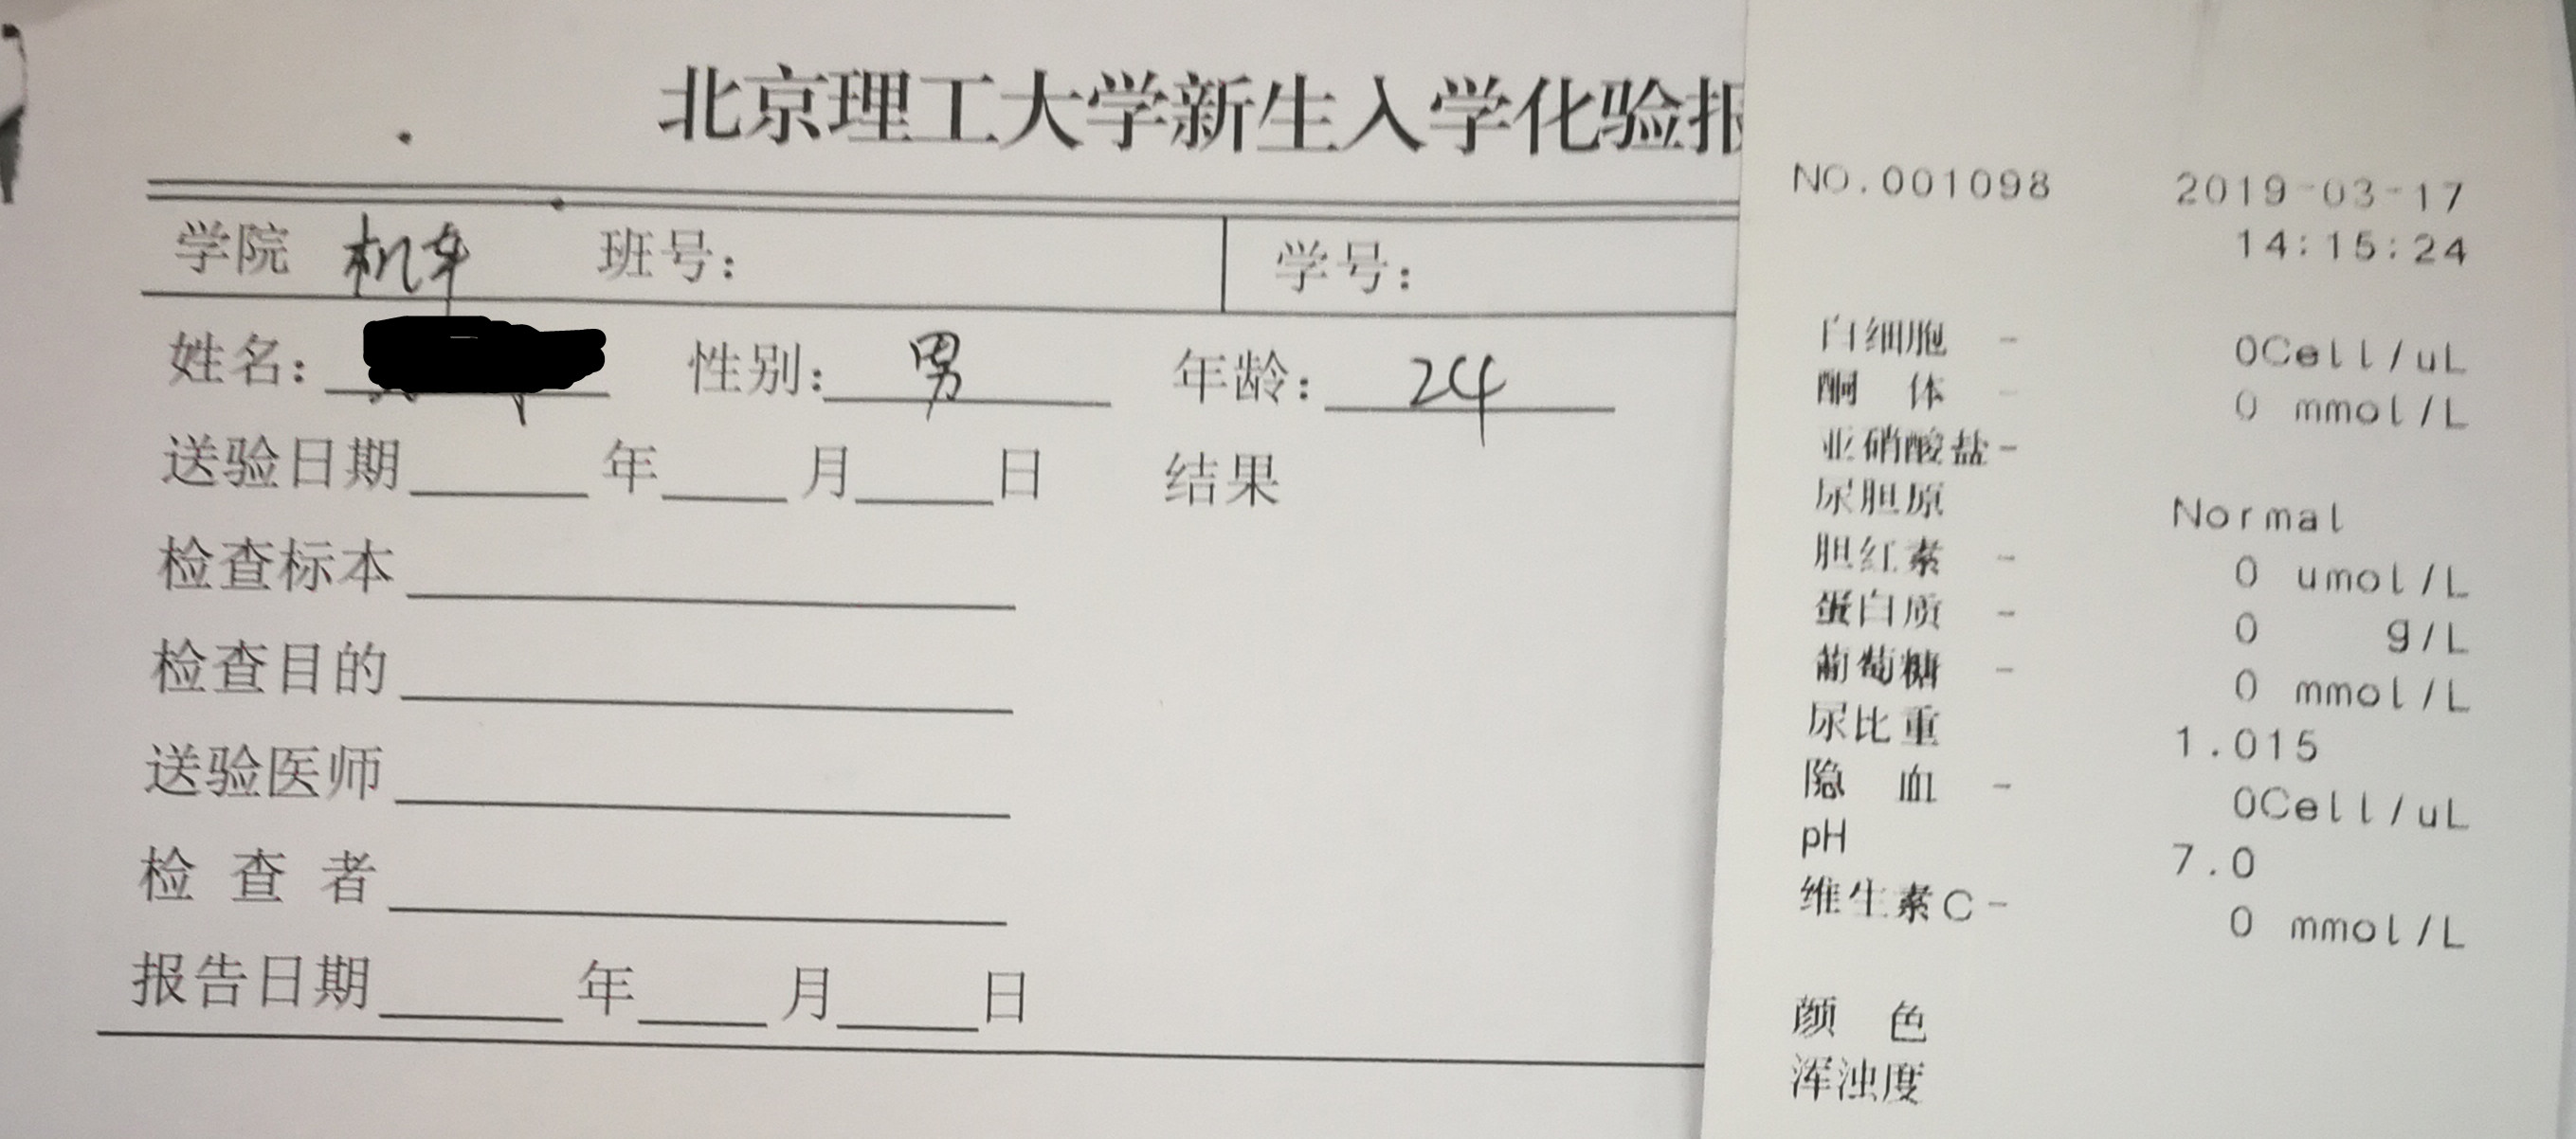 北京理工大学新生入学化验报
学院 机车 班号： 学号：
姓名： 性别： 男 年龄： 24
送验日期 年 月 日 结果
检查标本
检查目的
送验医师
检查者
报告日期 年 月 日
NO.001098 2019-03-17
14:15:24
白细胞 - 0Cell/uL
酮体 - 0 mmol/L
亚硝酸盐-
尿胆原 Normal
胆红素 - 0 umol/L
蛋白质 - 0 g/L
葡萄糖 - 0 mmol/L
尿比重 1.015
隐血 - 0Cell/uL
pH 7.0
维生素C- 0 mmol/L
颜色
浑浊度